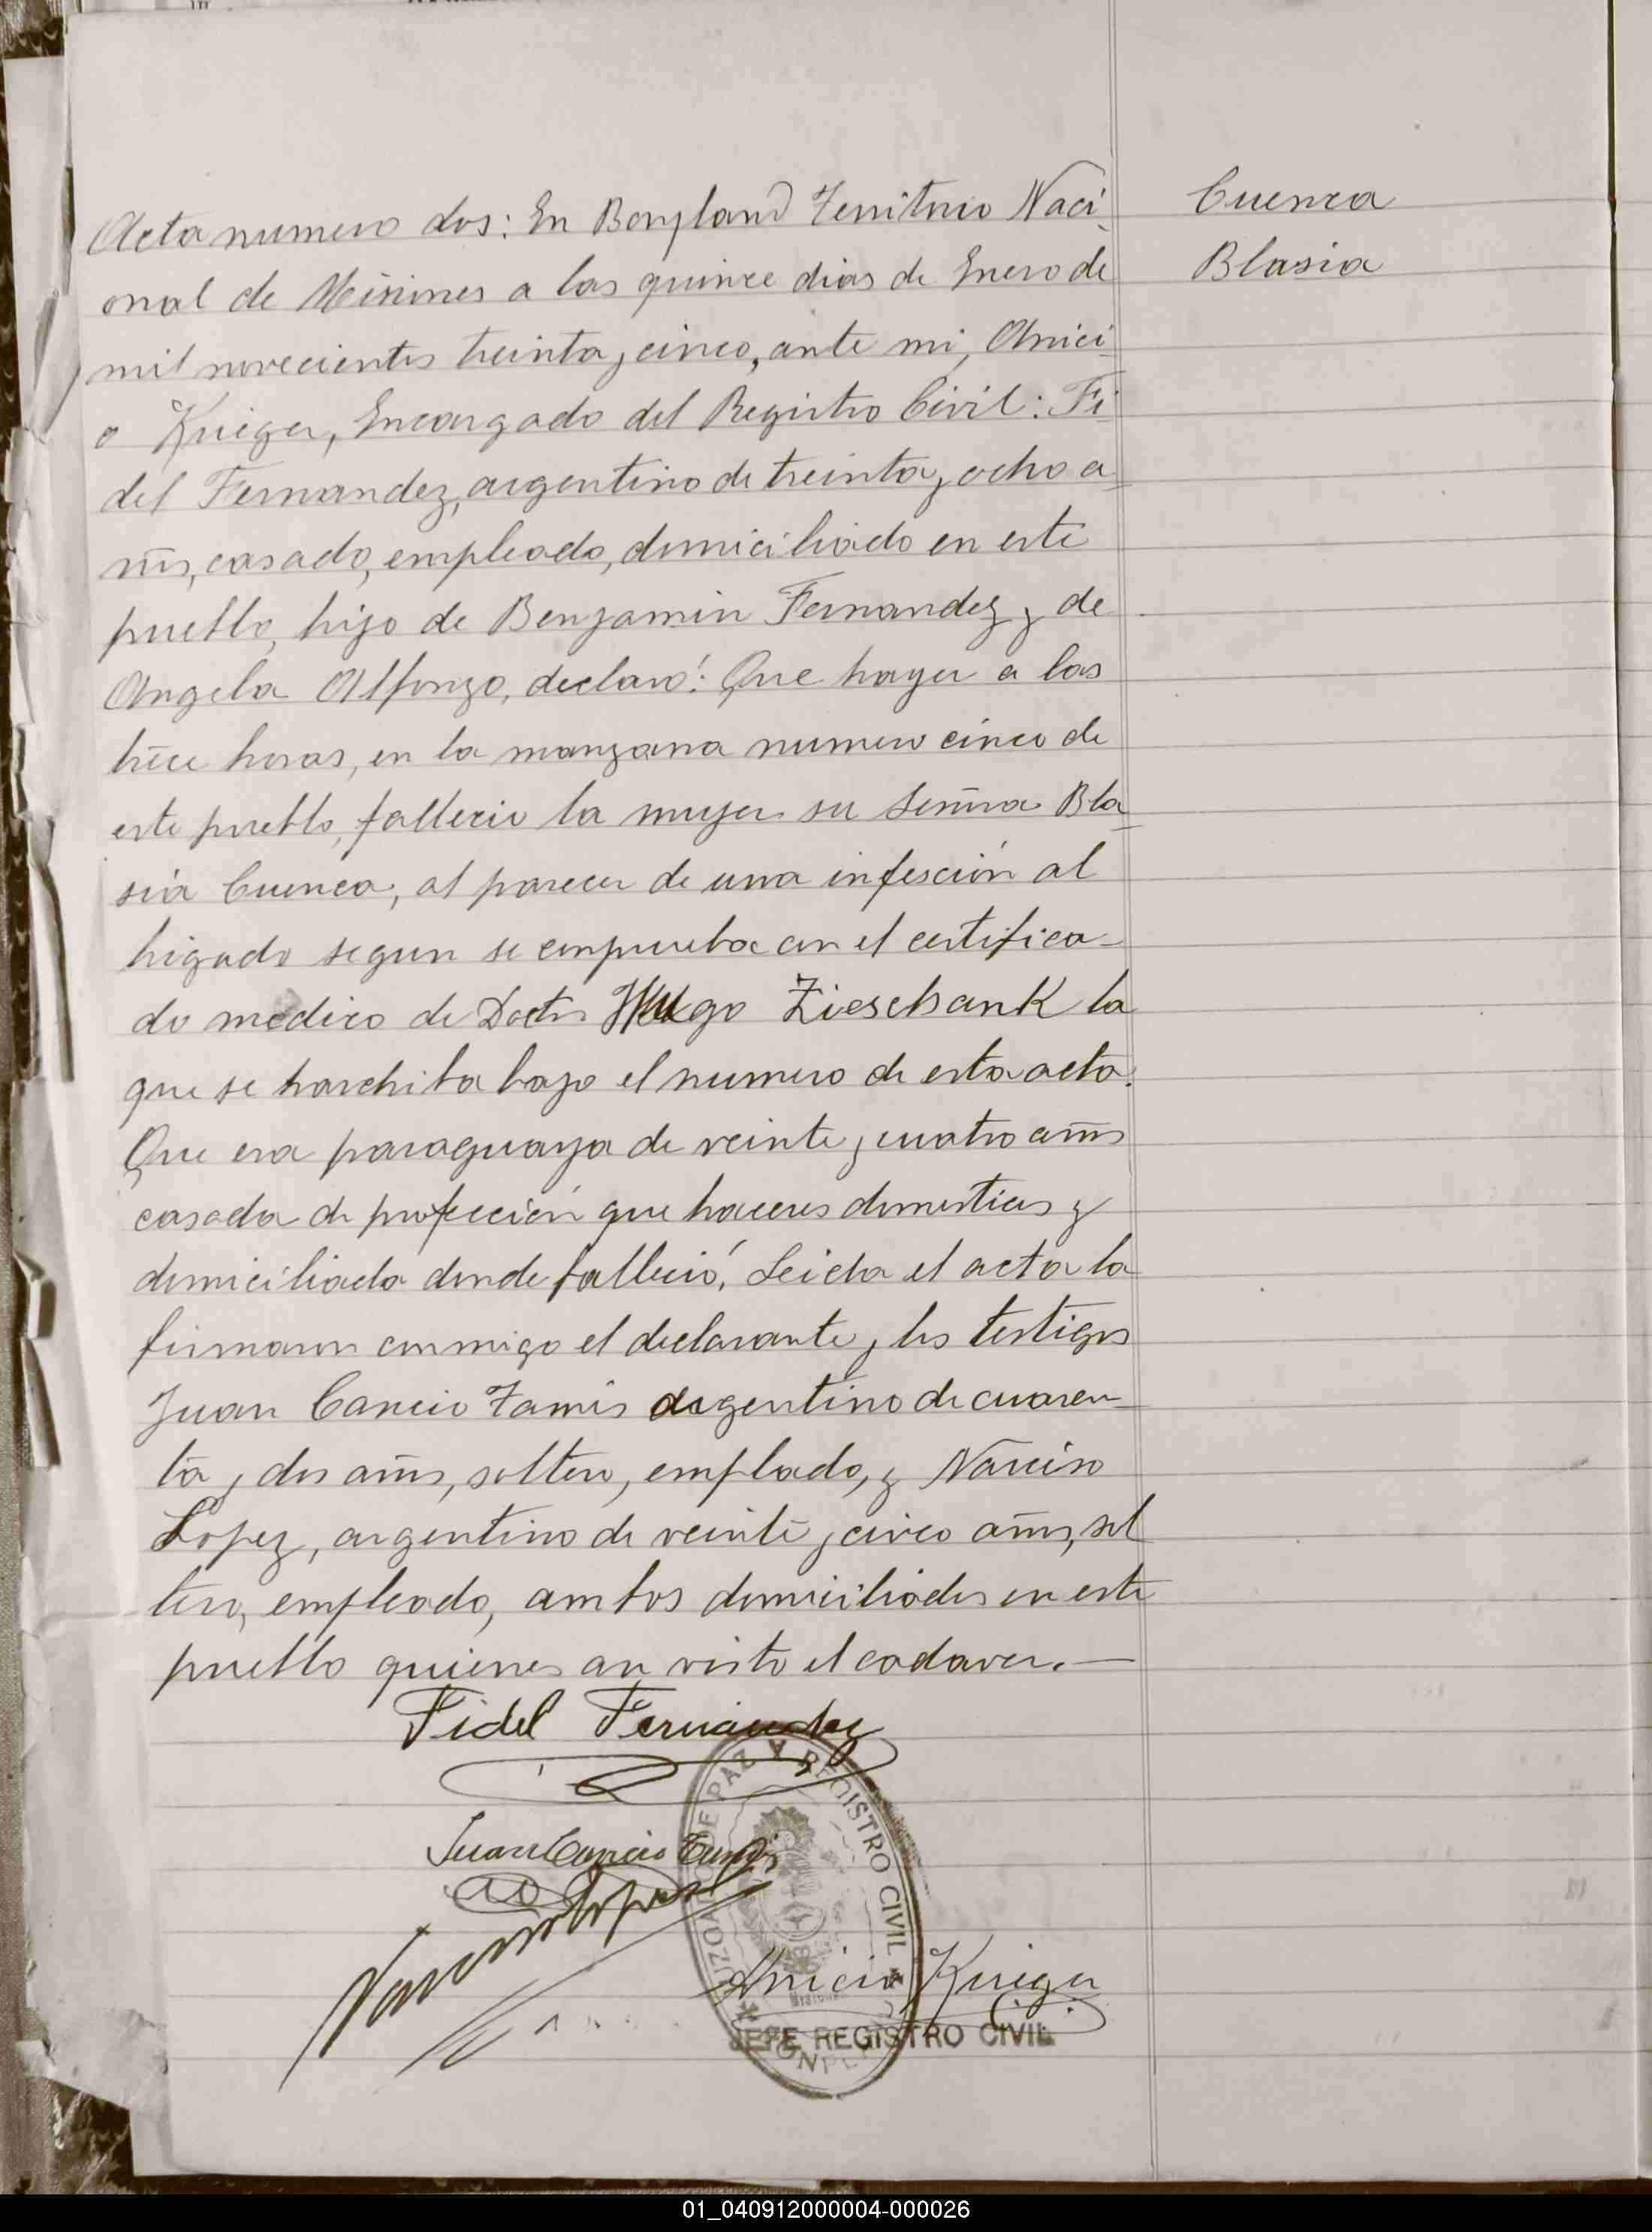 Cuenca
Blasia
Acta numero dos: En Bonpland Territorio Naci
onal de Misiones a los quince dias de Enero de
mil novecientos treinta y cinco, ante mi, Anici
o Krieger, Encargado del Registro Civil: Fi
del Fernandez, argentino de treinta y ocho a
ños, casado, empleado, domiciliado en este
pueblo, hijo de Benjamin Fernandez y de
Angela Alfonzo, declaró: Que hayer a las
trece horas, en la manzana numero cinco de
este pueblo, fallecio la mujer su señora Bla
sia Cuenca, al parecer de una infesción al
higado segun se comprueba con el certifica-
do medico de Doctor Hugo Zieschank la
que se harchiba bajo el numero de esta acta.
Que era paraguaya de veinte y cuatro años
casada de profección que haceres domesticos y
domiciliada donde falleció. Leida el acta la
firmaron conmigo el declarante y los testigos
Juan Cancio argentino de cuaren-
ta y dos años, soltero, emplado, y Narciso
Lopez, argentino de veinte y cinco años, sol
tero, empleado, ambos domiciliados en este
pueblo quienes an visto el cadaver.—
Fidel Fernandez
Juan Cancio
Narciso Lopez
Anicio Krieger
JUZGADO DE PAZ Y REGISTRO CIVIL
BONPLAND
JEFE REGISTRO CIVIL
01_040912000004-000026